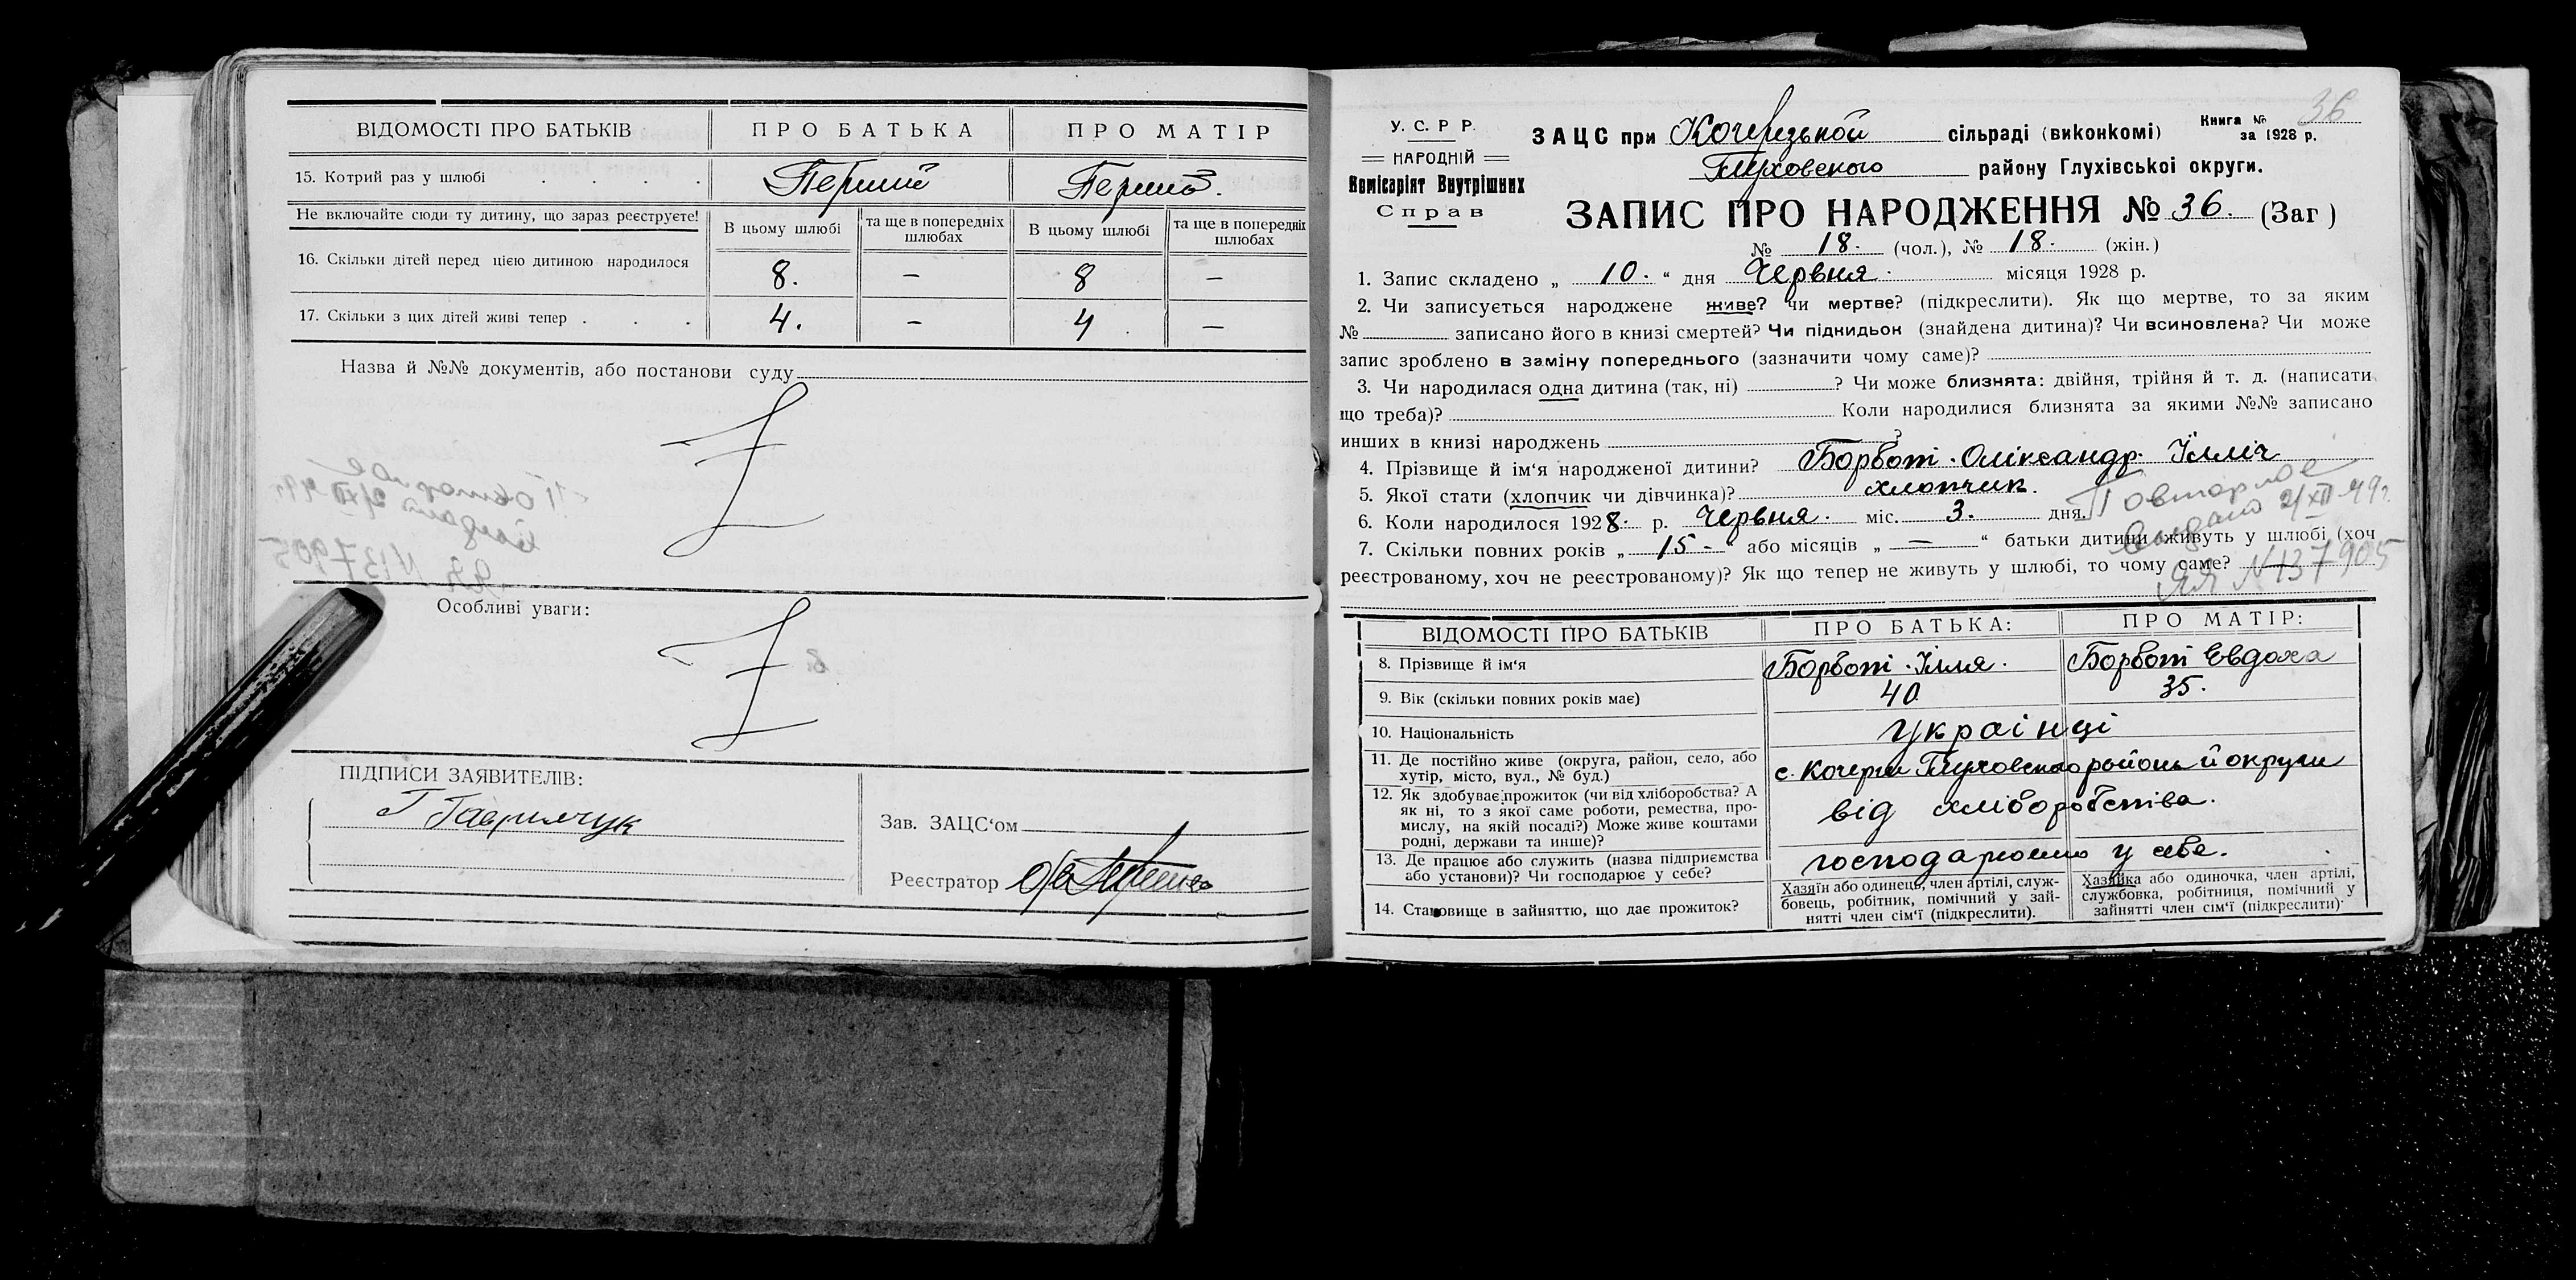 ВІДОМОСТІ ПРО БАТЬКІВ ПРО БАТЬКА ПРО МАТІР
15. Котрий раз у шлюбі . . . . Перший Перший.
Не включайте сюди ту дитину, що зараз реєструєте!
В цьому шлюбі та ще в попередніх шлюбах В цьому шлюбі та ще в попередніх шлюбах
16. Скільки дітей перед цією дитиною народилося 8. – 8 –
17. Скільки з цих дітей живі тепер . . . 4. – 4 –
Назва й №№ документів, або постанови суду
Особливі уваги:
ПІДПИСИ ЗАЯВИТЕЛІВ:
Г Гаврилчук
Зав. ЗАЦС'ом
Реєстратор
У. С. Р Р.
НАРОДНІЙ
Комісаріят Внутрішних
Справ
ЗАЦС при Кочерзькой сільраді (виконкомі)
Книга № 36
за 1928 р.
Глуховского району Глухівської округи.
ЗАПИС ПРО НАРОДЖЕННЯ № 36. (Заг)
№ 18. (чол.), № 18. (жін.)
1. Запис складено „ 10. “ дня Червня. місяця 1928 р.
2. Чи записується народжене живе? чи мертве? (підкреслити). Як що мертве, то за яким
№ записано його в книзі смертей? Чи підкидьок (знайдена дитина)? Чи всиновлена? Чи може
запис зроблено в заміну попереднього (зазначити чому саме)?
3. Чи народилася одна дитина (так, ні) ? Чи може близнята: двійня, трійня й т. д. (написати
що треба)? Коли народилися близнята за якими №№ записано
инших в книзі народжень ?
4. Прізвище й ім'я народженої дитини? Борботі. Оліксандр. Ілліч
5. Якої стати (хлопчик чи дівчинка)? хлопчик.
6. Коли народилося 1928. р. Червня. міс. 3. дня.
7. Скільки повних років „ 15 – “ або місяців „ – “ батьки дитини живуть у шлюбі (хоч
реєстрованому, хоч не реєстрованому)? Як що тепер не живуть у шлюбі, то чому саме?
Повторное
Выдано 2/XII 49г.
ЯЯ N 137905
ВІДОМОСТІ ПРО БАТЬКІВ ПРО БАТЬКА: ПРО МАТІР:
8. Прізвище й ім'я Борботі. Ілля. Борботі Євдоха
9. Вік (скільки повних років має) 40 35.
10. Національність українці
11. Де постійно живе (округа, район, село, або
хутір, місто, вул., № буд.)
с. Кочерги Глуховского району й округи
12. Як здобуває прожиток (чи від хліборобства? А
як ні, то з якої саме роботи, ремества, про-
мислу, на якій посаді?) Може живе коштами
родні, держави та инше)?
від хліборобства.
13. Де працює або служить (назва підприємства
або установи)? Чи господарює у себе?
господарюємо у себе.
14. Становище в зайняттю, що дає прожиток?
Хазяїн або одинець, член артілі, служ-
бовець, робітник, помічний у зай-
нятті член сім'ї (підкреслити).
Хазяйка або одиночка, член артілі,
службовка, робітниця, помічний у
зайнятті член сім'ї (підкреслити).